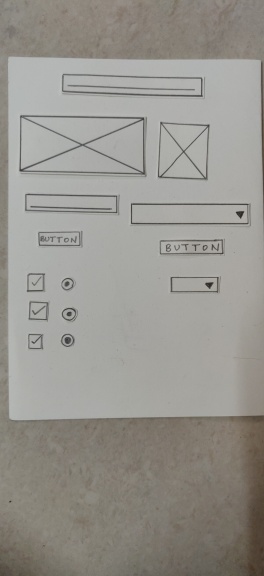 BUTTON
BUTTON